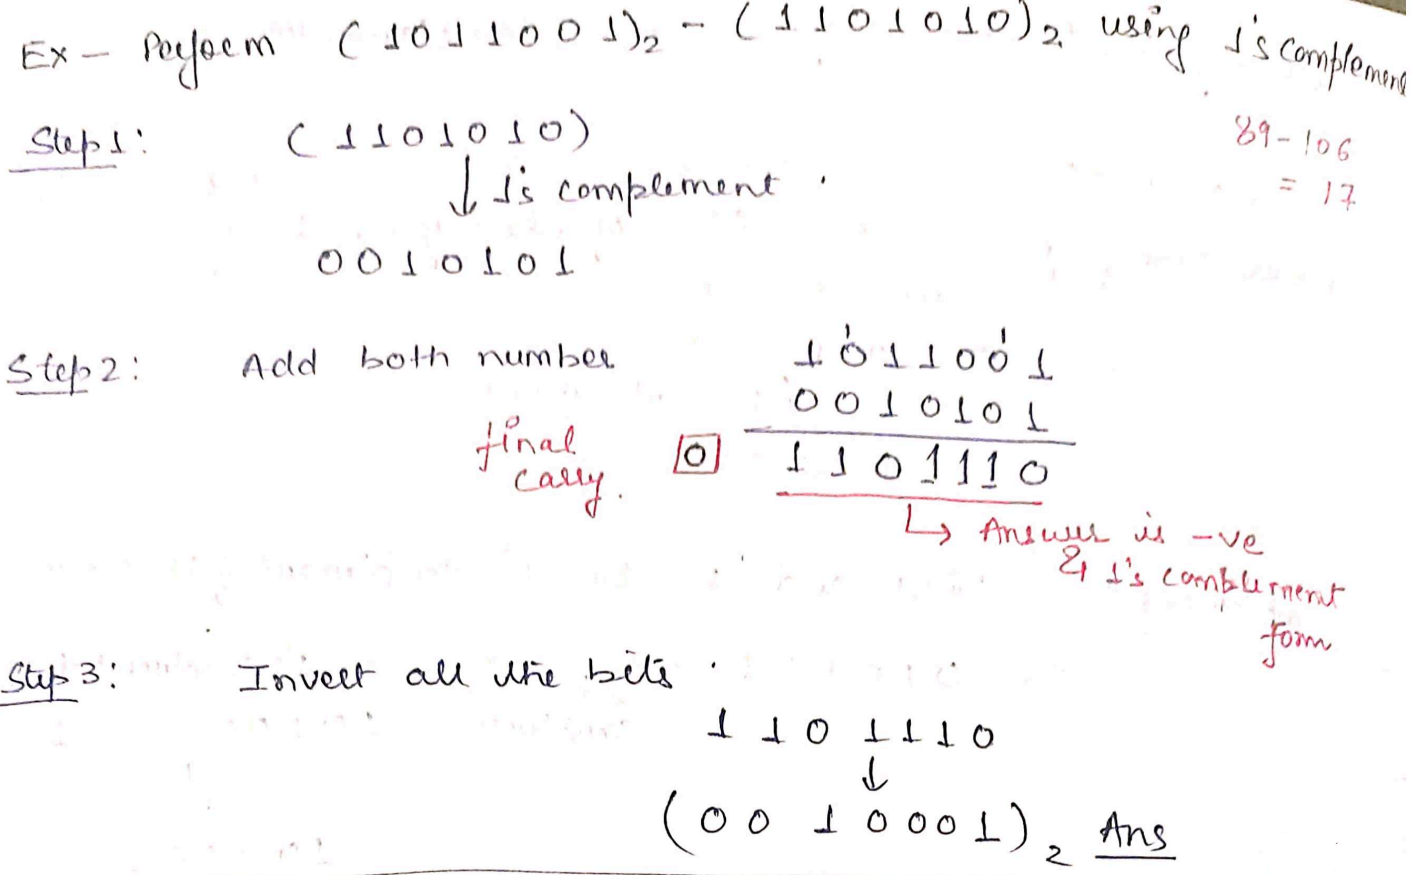 Ex - Perform (1011001)₂ - (1101010)₂ using 1's complement
Step 1: (1101010)
89-106
= 17
↓ 1's complement.
0010101
Step 2: Add both number
1 1
1011001
0010101
final carry. 0 1101110
↳ Answer is -ve
& 1's complement
form
Step 3: Invert all the bits.
1101110
↓
(0010001)₂ Ans